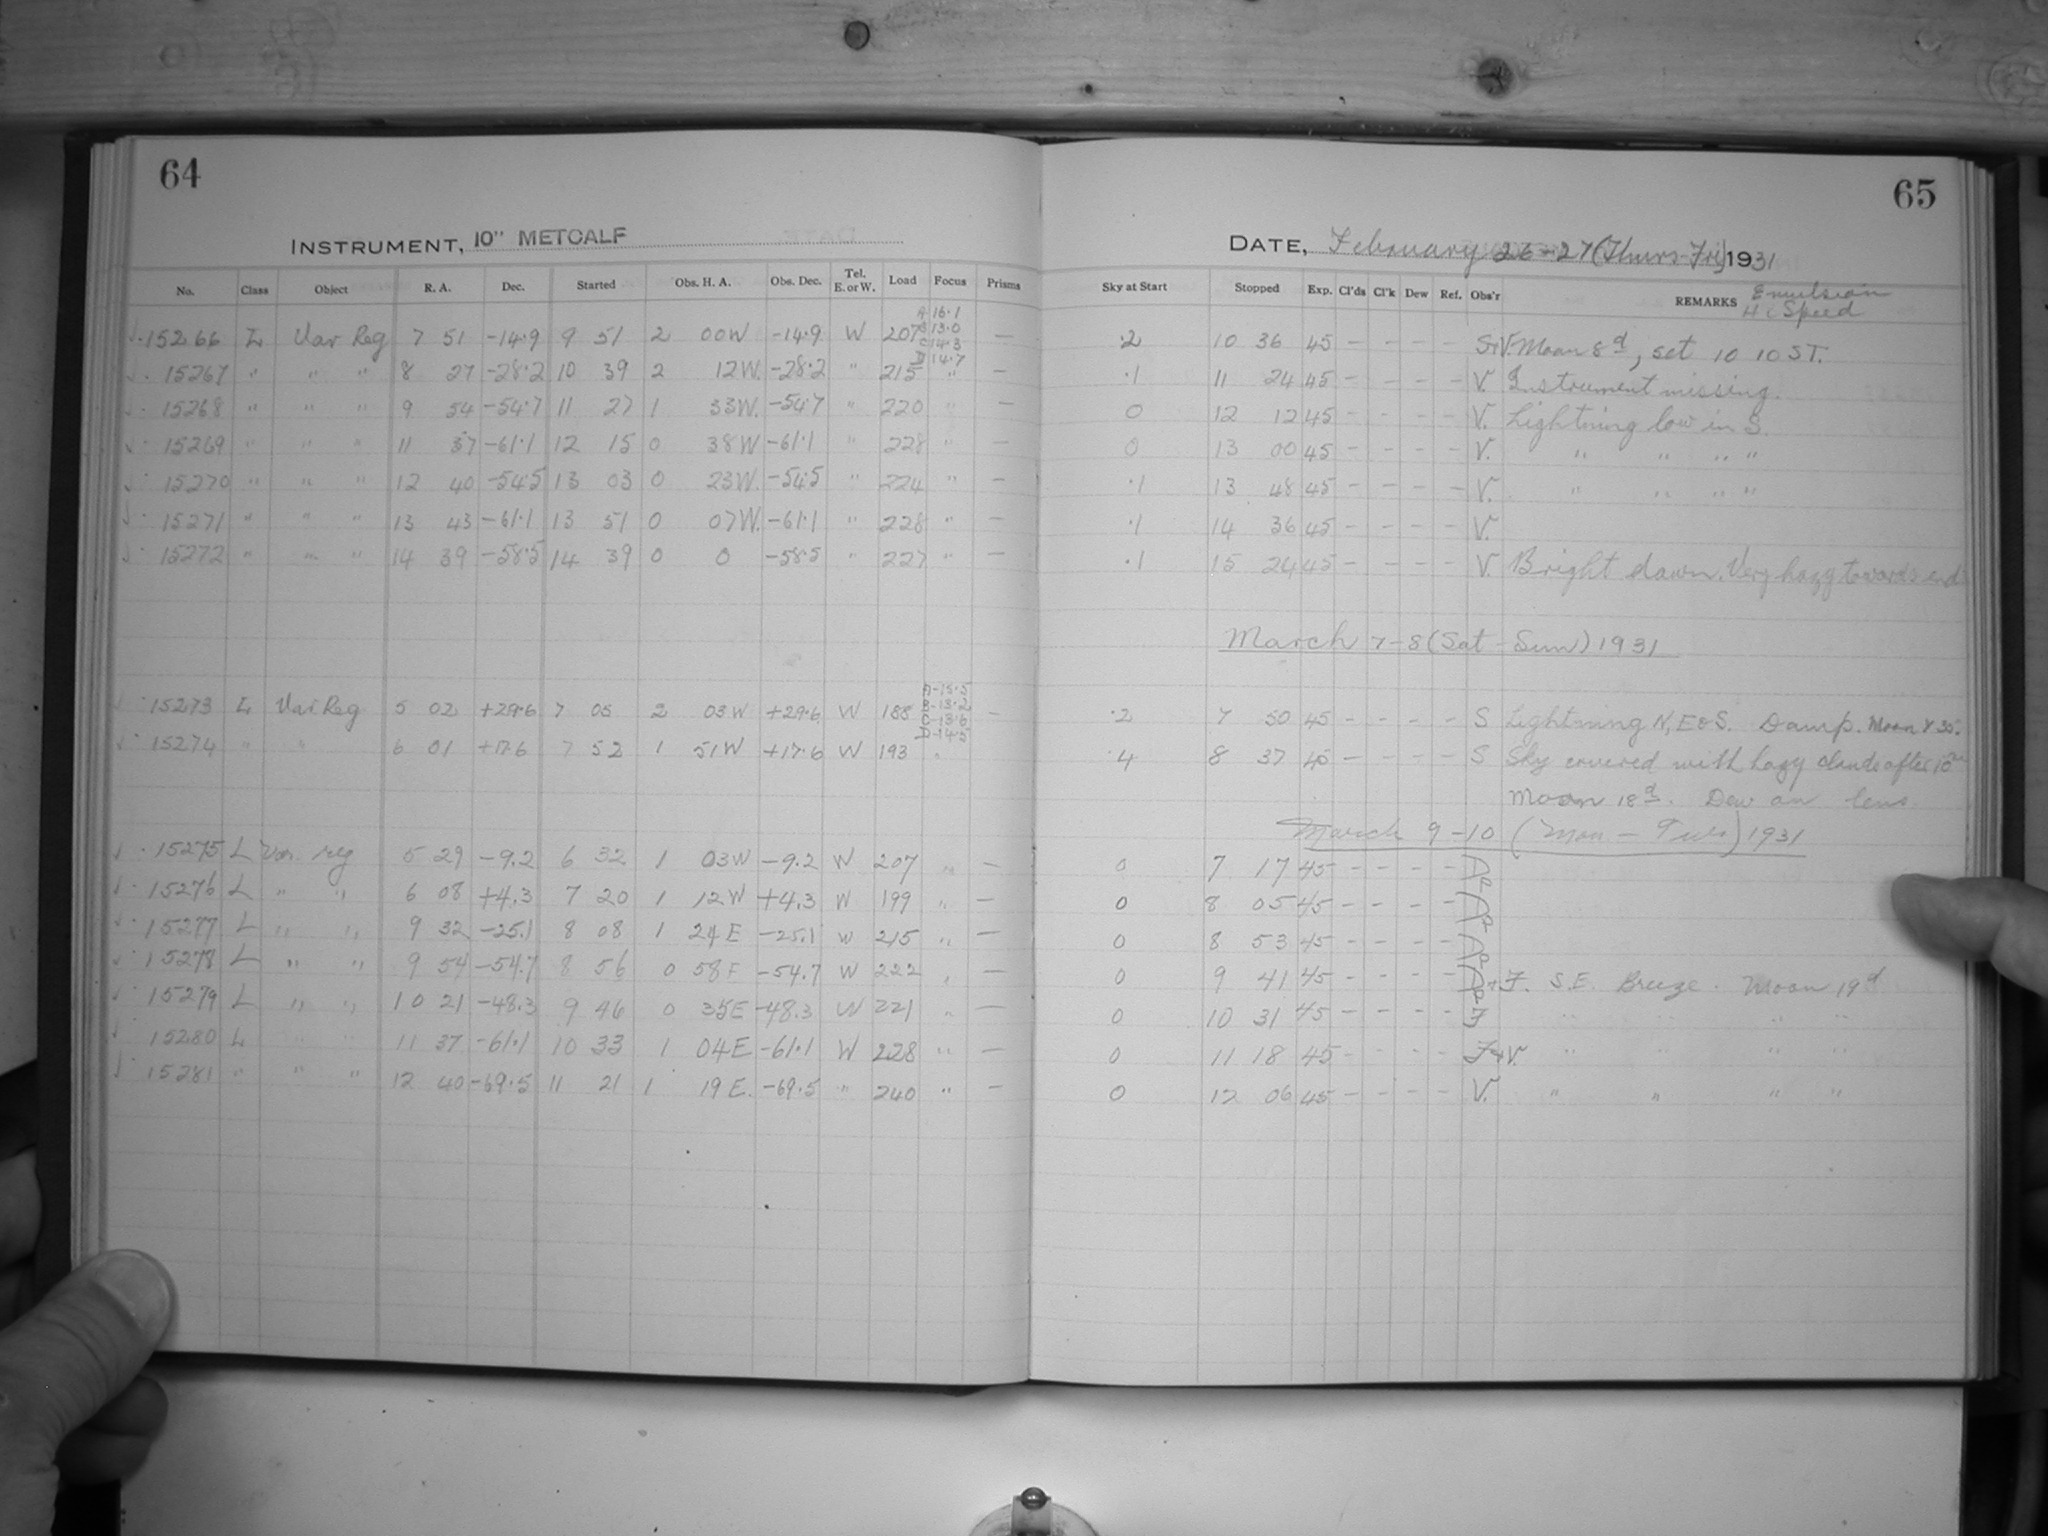 64
INSTRUMENT, 10" METCALF
No. Class Object R. A. Dec. Started Obs. H. A. Obs. Dec. Tel. E. or W. Load Focus Prisms
A 16.1
B 13.0
C 14.3
D 14.7
15266 L Var Reg 7 51 -14.9 9 51 2 00W -14.9 W 207 —
15267 " " " 8 27 -28.2 10 39 2 12W -28.2 " 215 " —
15268 " " " 9 54 -54.7 11 27 1 33W. -54.7 " 220 " —
15269 " " " 11 37 -61.1 12 15 0 38W -61.1 " 228 " —
15270 " " " 12 40 -54.5 13 03 0 23W. -54.5 " 224 " —
15271 " " " 13 43 -61.1 13 51 0 07W. -61.1 " 228 " —
15272 " " " 14 39 -58.5 14 39 0 0 -58.5 " 227 " —
A-15.5
B-13.2
C-13.6
D-14.5
15273 L Var Reg 5 02 +29.6 7 05 2 03W +29.6 W 188 —
15274 " " 6 01 +17.6 7 52 1 51W +17.6 W 193 "
15275 L Var. reg 5 29 -9.2 6 32 1 03W -9.2 W 207 " —
15276 L " " 6 08 +4.3 7 20 1 12W +4.3 W 199 " —
15277 L " " 9 32 -25.1 8 08 1 24E -25.1 W 215 " —
15278 L " " 9 54 -54.7 8 56 0 58E -54.7 W 222 " —
15279 L " " 10 21 -48.3 9 46 0 35E -48.3 W 221 " —
15280 L " " 11 37 -61.1 10 33 1 04E -61.1 W 228 " —
15281 " " " 12 40 -69.5 11 21 1 19E. -69.5 " 240 " —
65
DATE, February 26-27 (Thurs-Fri) 1931
Sky at Start Stopped Exp. Cl'ds Cl'k Dew Ref. Obs'r REMARKS Emulsion
Hi Speed
.2 10 36 45 - - - - S+V. Moon 8d, set 10 10 ST.
.1 11 24 45 - - - - V. Instrument missing.
0 12 12 45 - - - - V. Lightning low in S.
0 13 00 45 - - - - V. " " " "
.1 13 48 45 - - - - V. " " " "
.1 14 36 45 - - - - V.
.1 15 24 45 - - - - V. Bright dawn. Very hazy towards end
March 7-8 (Sat-Sun) 1931
.2 7 50 45 - - - - S Lightning N, E & S. Damp. Moon
.4 8 37 45 - - - - S Sky covered with hazy clouds after
Moon 18d. Dew on lens.
March 9-10 (Mon-Tues) 1931
0 7 17 45 - - - -
0 8 05 45 - - - -
0 8 53 45 - - - -
0 9 41 45 - - - - F. S.E. Breeze. Moon 19d
0 10 31 45 - - - - F " " " "
0 11 18 45 - - - - F+V. " " " "
0 12 06 45 - - - - V. " " " "